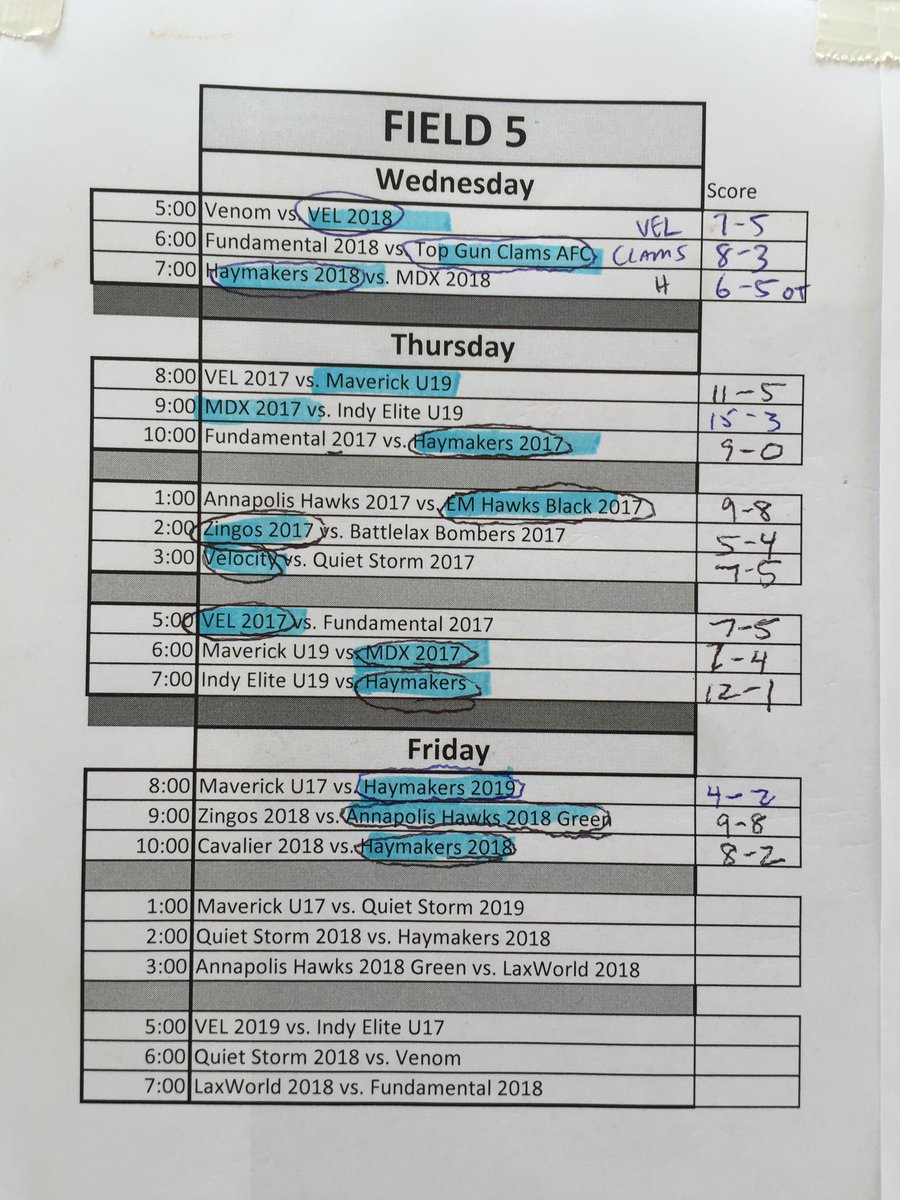 FIELD 5
Wednesday
Score
5:00 Venom vs. VEL 2018 VEL 7-5
6:00 Fundamental 2018 vs. Top Gun Clams AFC CLAMS 8-3
7:00 Haymakers 2018 vs. MDX 2018 H 6-5 OT
Thursday
8:00 VEL 2017 vs. Maverick U19 11-5
9:00 MDX 2017 vs. Indy Elite U19 15-3
10:00 Fundamental 2017 vs. Haymakers 2017 9-0
1:00 Annapolis Hawks 2017 vs. EM Hawks Black 2017 9-8
2:00 Zingos 2017 vs. Battlelax Bombers 2017 5-4
3:00 Velocity vs. Quiet Storm 2017 7-5
5:00 VEL 2017 vs. Fundamental 2017 7-5
6:00 Maverick U19 vs. MDX 2017 7-4
7:00 Indy Elite U19 vs. Haymakers 12-1
Friday
8:00 Maverick U17 vs. Haymakers 2019 4-2
9:00 Zingos 2018 vs. Annapolis Hawks 2018 Green 9-8
10:00 Cavalier 2018 vs. Haymakers 2018 8-2
1:00 Maverick U17 vs. Quiet Storm 2019
2:00 Quiet Storm 2018 vs. Haymakers 2018
3:00 Annapolis Hawks 2018 Green vs. LaxWorld 2018
5:00 VEL 2019 vs. Indy Elite U17
6:00 Quiet Storm 2018 vs. Venom
7:00 LaxWorld 2018 vs. Fundamental 2018